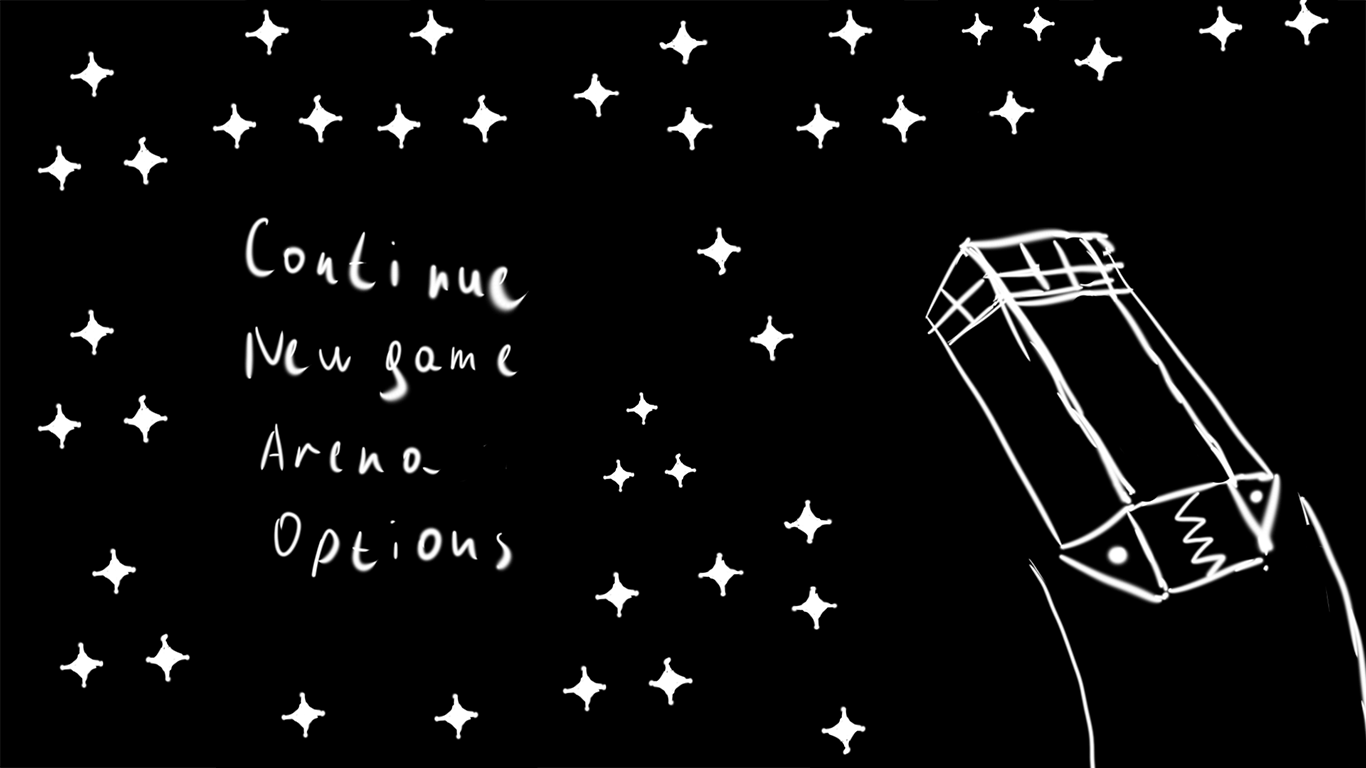 Continue
New game
Arena
Options